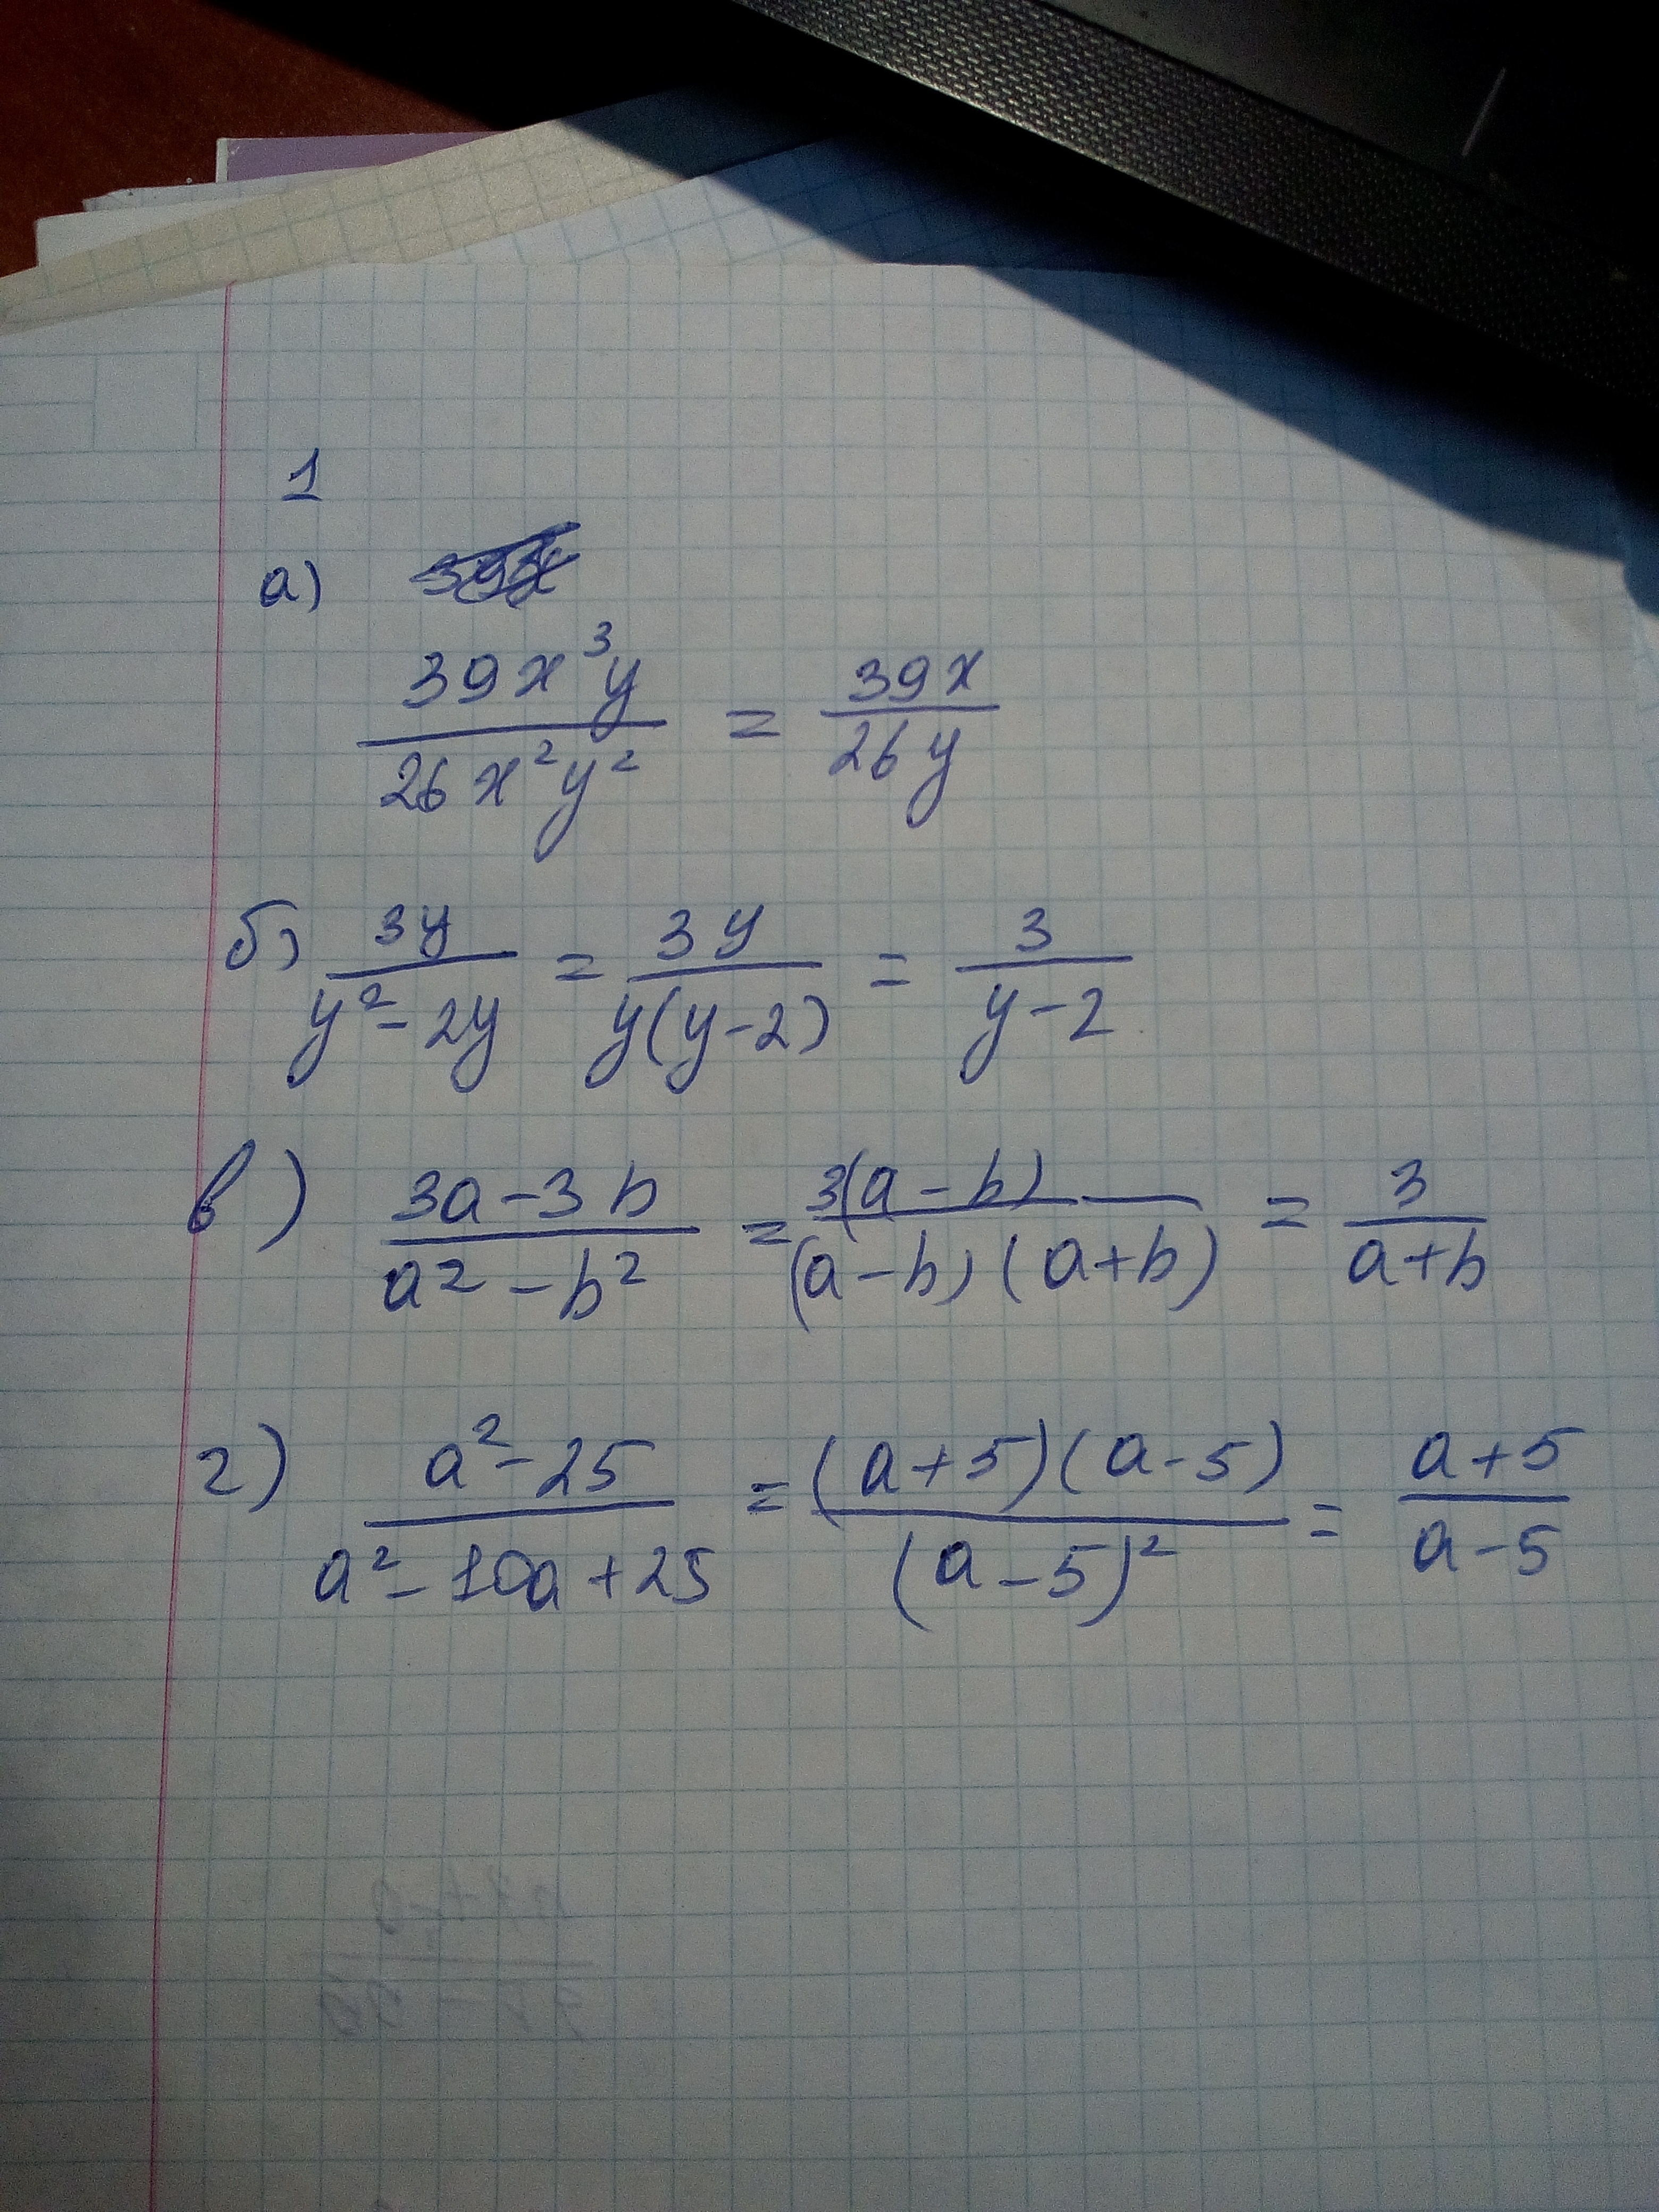 1
а)
39x³y / 26x²y² = 39x / 26y
б) 3y / y² - 2y = 3y / y(y-2) = 3 / y-2
в) 3a-3b / a² - b² = 3(a-b) / (a-b)(a+b) = 3 / a+b
г) a²-25 / a²-10a+25 = (a+5)(a-5) / (a-5)² = a+5 / a-5